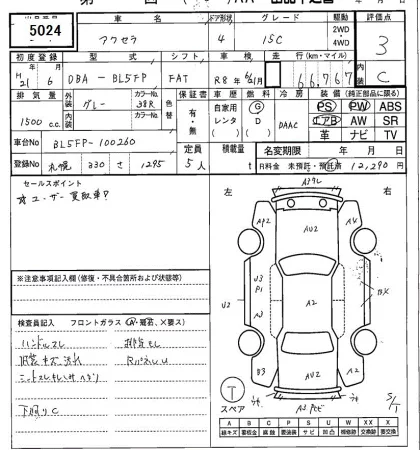 5024
車名
ドア形状
グレード
駆動
評価点
アクセラ
4
15C
2WD
・
4WD
3
初度登録
型式
シフト
車検
走行(km・マイル)
内装
H 年 月
21 6
DBA-BL5FP
FAT
R8年6/2月
66,767
C
排気量
外装
カラーNo.
色替
保証書
車歴
燃料
冷房
装備(純正部品に限る)
1500 c.c.
グレー
38R
カラーNo.
有・無
自家用
レンタ
( )
G
D
( )
DAAC
PS PW ABS
エアB AW SR
革 ナビ TV
車台No
BL5FP-100260
定員
積載量
名変期限
年 月 日
登録No
札幌 330 さ 1295
5人
t
R料金 未預託・預託済
12,290円
セールスポイント
☆ユーザー買取車!
左
右
※注意事項記入欄(修復・不具合箇所および状態等)
検査員記入
フロントガラス
ハンドルスレ
下廻りC
AU2
A2
U2
U3
P1
A3
B3
A2
スペア
T
A B C P S U W X XX
線キズ 要板金 腐蝕 要塗装 サビ 凹凸 補修跡 交換跡 要交換